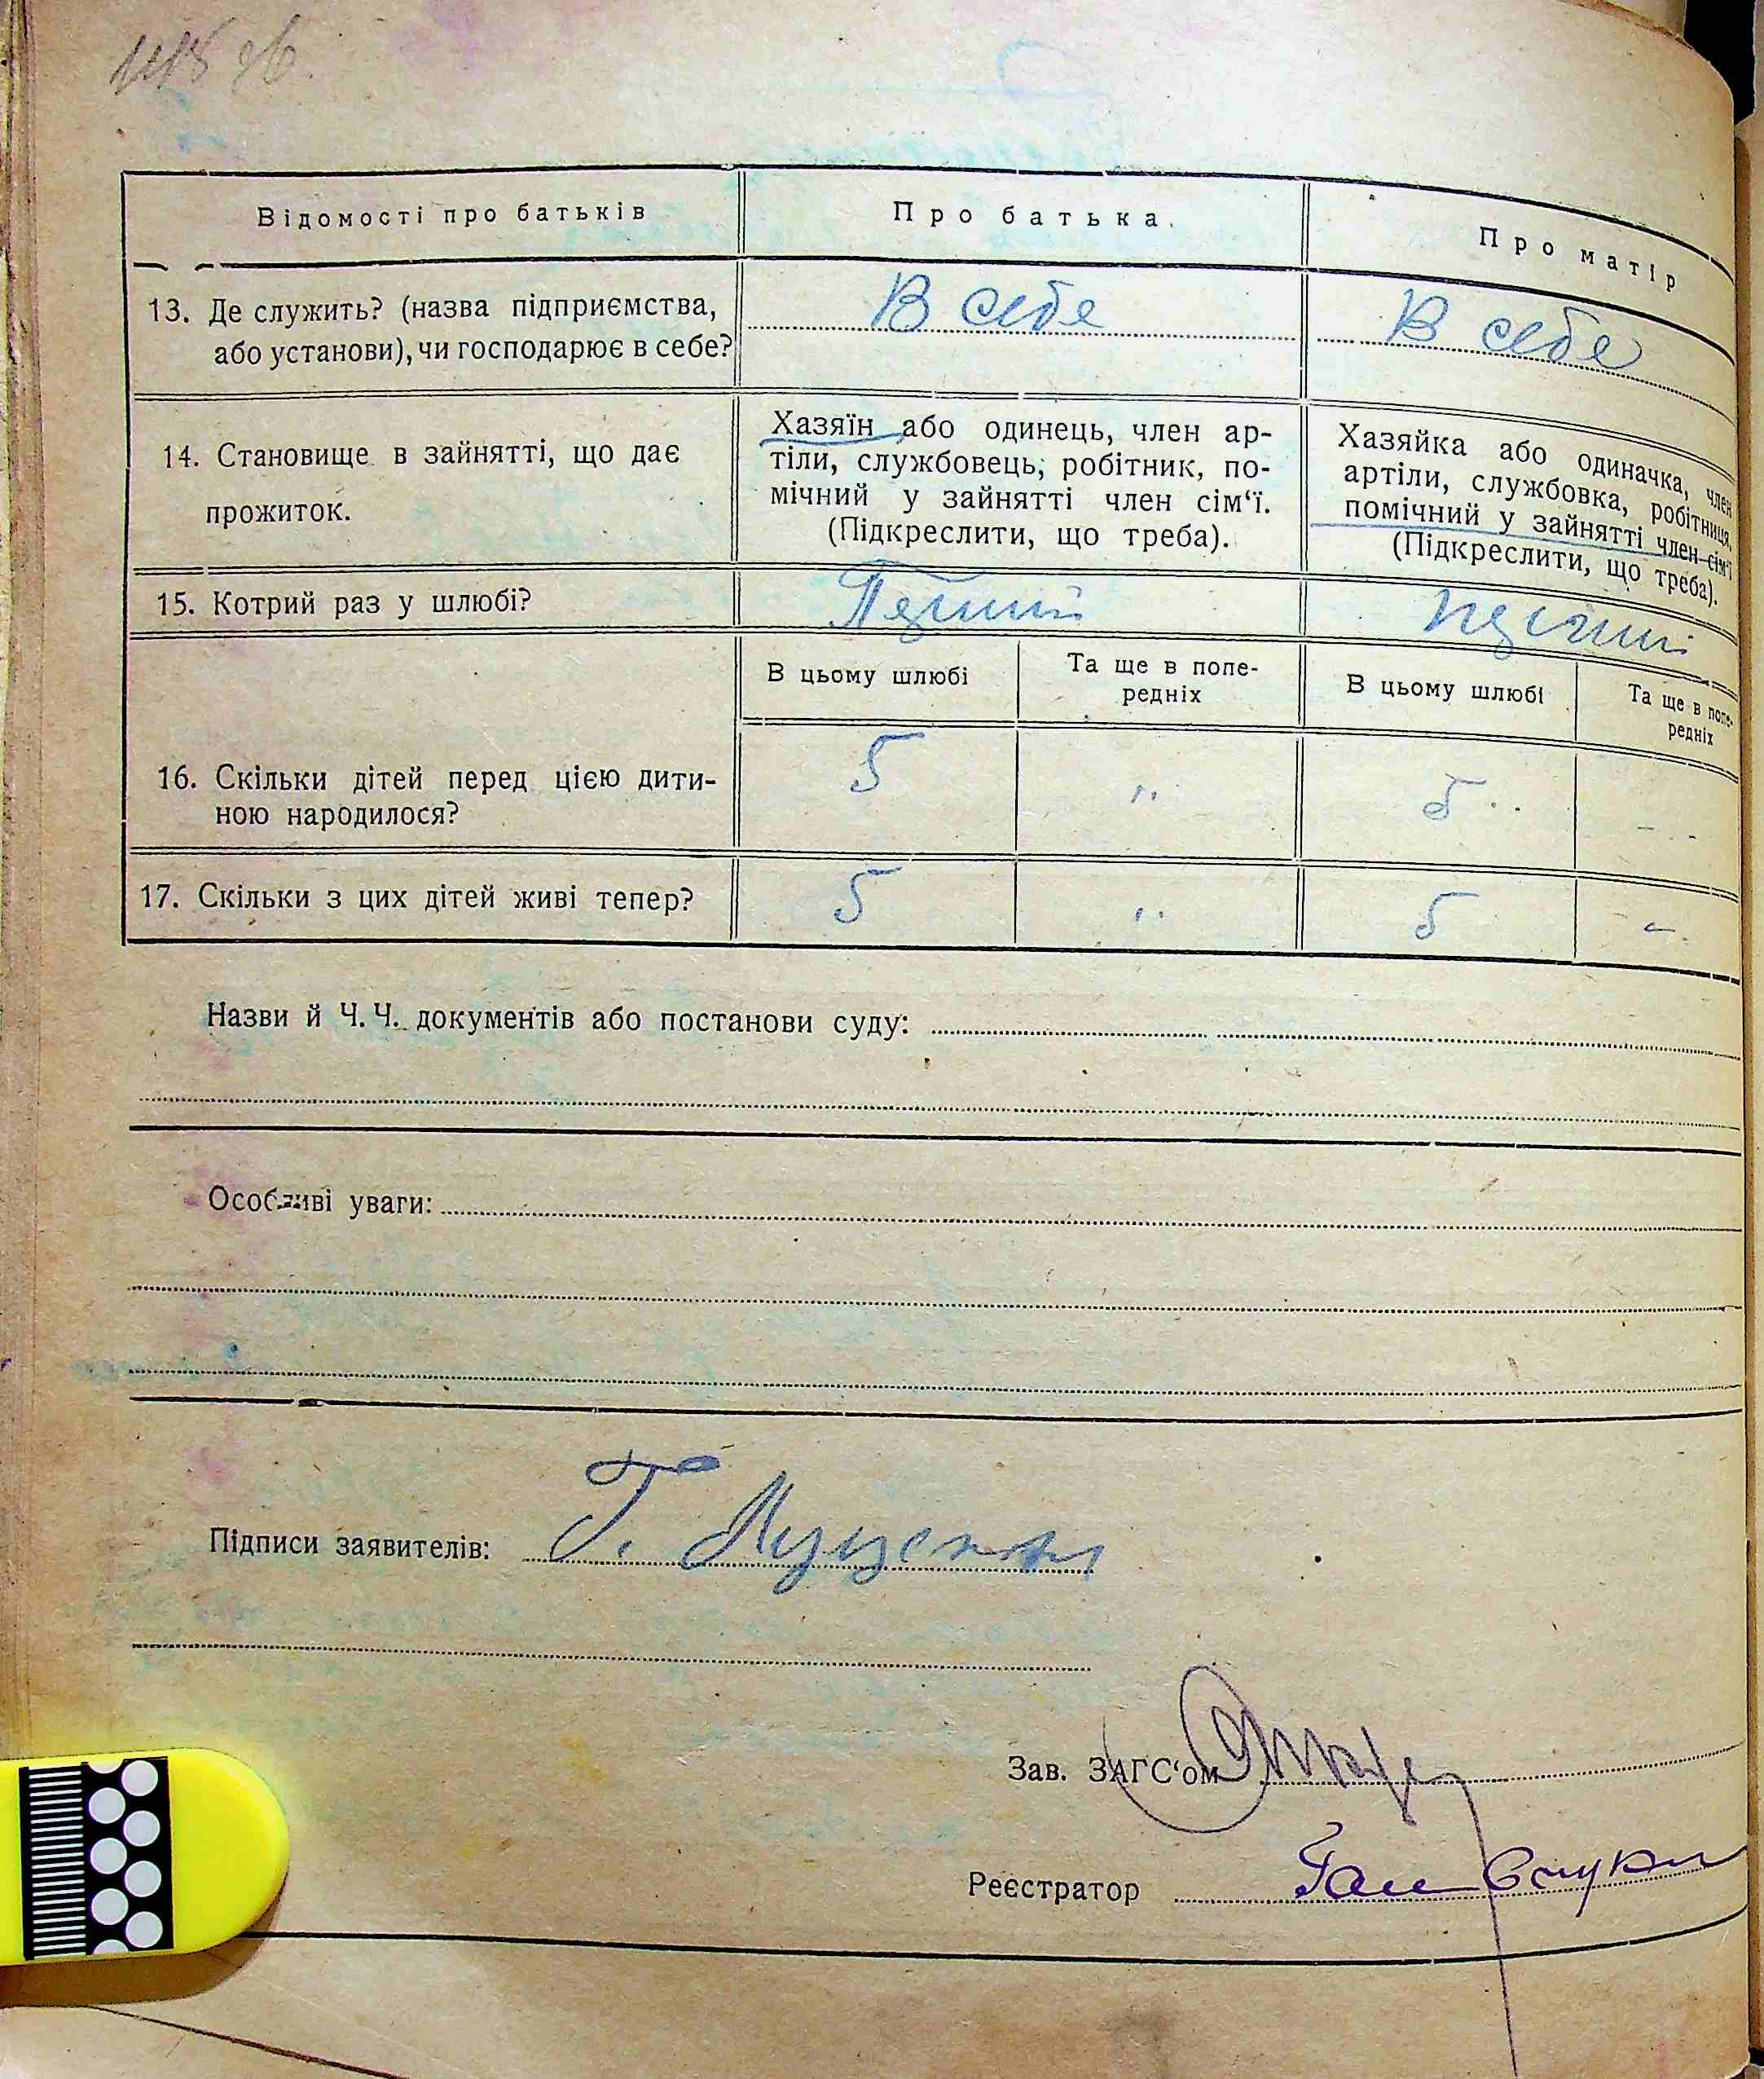 Відомості про батьків
Про батька.
Про матір
13. Де служить? (назва підприємства,
або установи), чи господарює в себе?
В себе
В себе
14. Становище в зайнятті, що дає
прожиток.
Хазяїн або одинець, член ар-
тіли, службовець, робітник, по-
мічний у зайнятті член сім‘ї.
(Підкреслити, що треба).
Хазяйка або одиначка, член
артіли, службовка, робітниця,
помічний у зайнятті член сім‘ї
(Підкреслити, що треба).
15. Котрий раз у шлюбі?
В цьому шлюбі
Та ще в попе-
редніх
В цьому шлюбі
Та ще в попе-
редніх
16. Скільки дітей перед цією дити-
ною народилося?
5
"
5
- -
17. Скільки з цих дітей живі тепер?
5
"
5
-
Назви й Ч. Ч. документів або постанови суду:
Особливі уваги:
Підписи заявителів: Г.
Зав. ЗАГС‘ом
Реєстратор